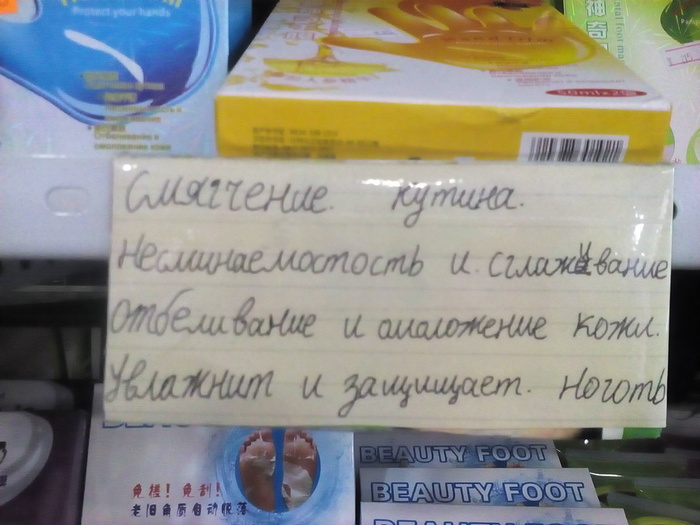 Protect your hands
50ml×2袋
Смягчение. кутина.
Несминаемостость и. сглаживание
Отбеливание и омоложение кожи.
Увлажнит и защищает. Ноготь
免搓! 免刮!
老旧角质自动脱落
BEAUTY FOOT
BEAUTY FOOT
BEAUTY FOOT